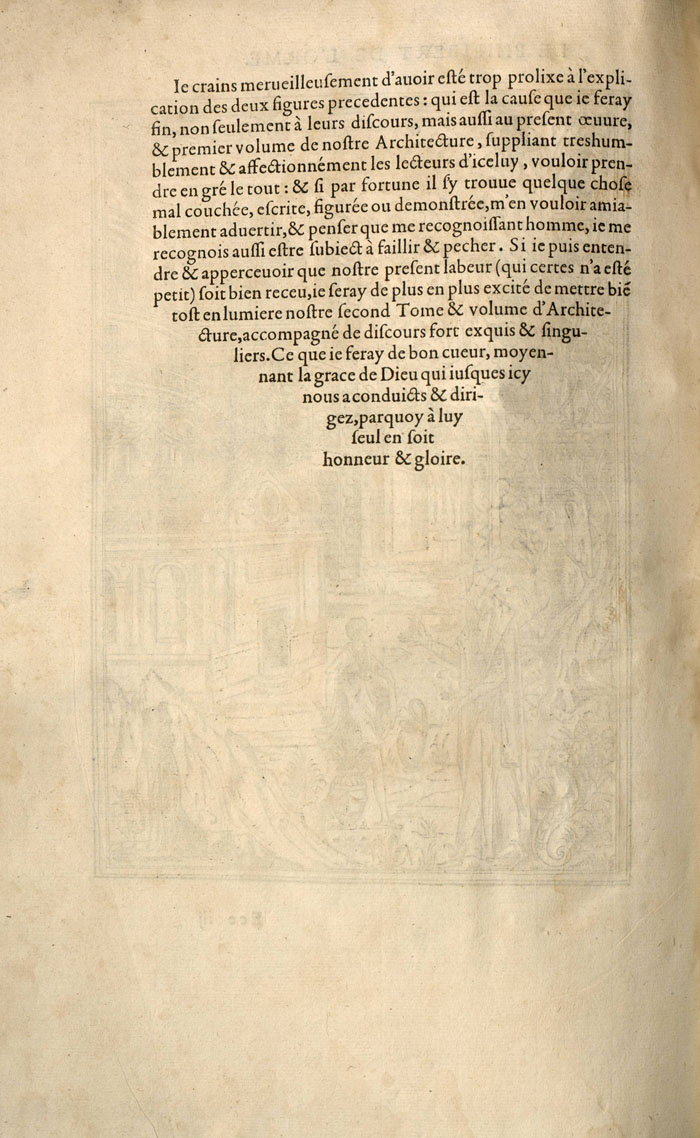 Ie crains merueilleuſement d'auoir eſté trop prolixe à l'expli-
cation des deux figures precedentes : qui eſt la cauſe que ie feray
fin, non ſeulement à leurs diſcours, mais auſſi au preſent œuure,
& premier volume de noſtre Architecture, ſuppliant treshum-
blement & affectionnément les lecteurs d'iceluy, vouloir pren-
dre en gré le tout : & ſi par fortune il ſy trouue quelque choſe
mal couchée, eſcrite, figurée ou demonſtrée, m'en vouloir amia-
blement aduertir, & penſer que me recognoiſſant homme, ie me
recognois auſſi eſtre ſubiect à faillir & pecher. Si ie puis enten-
dre & apperceuoir que noſtre preſent labeur (qui certes n'a eſté
petit) ſoit bien receu, ie ſeray de plus en plus excité de mettre biẽ
toſt en lumiere noſtre ſecond Tome & volume d'Archite-
cture, accompagné de diſcours fort exquis & ſingu-
liers. Ce que ie feray de bon cueur, moyen-
nant la grace de Dieu qui iuſques icy
nous a conduicts & diri-
gez, parquoy à luy
ſeul en ſoit
honneur & gloire.